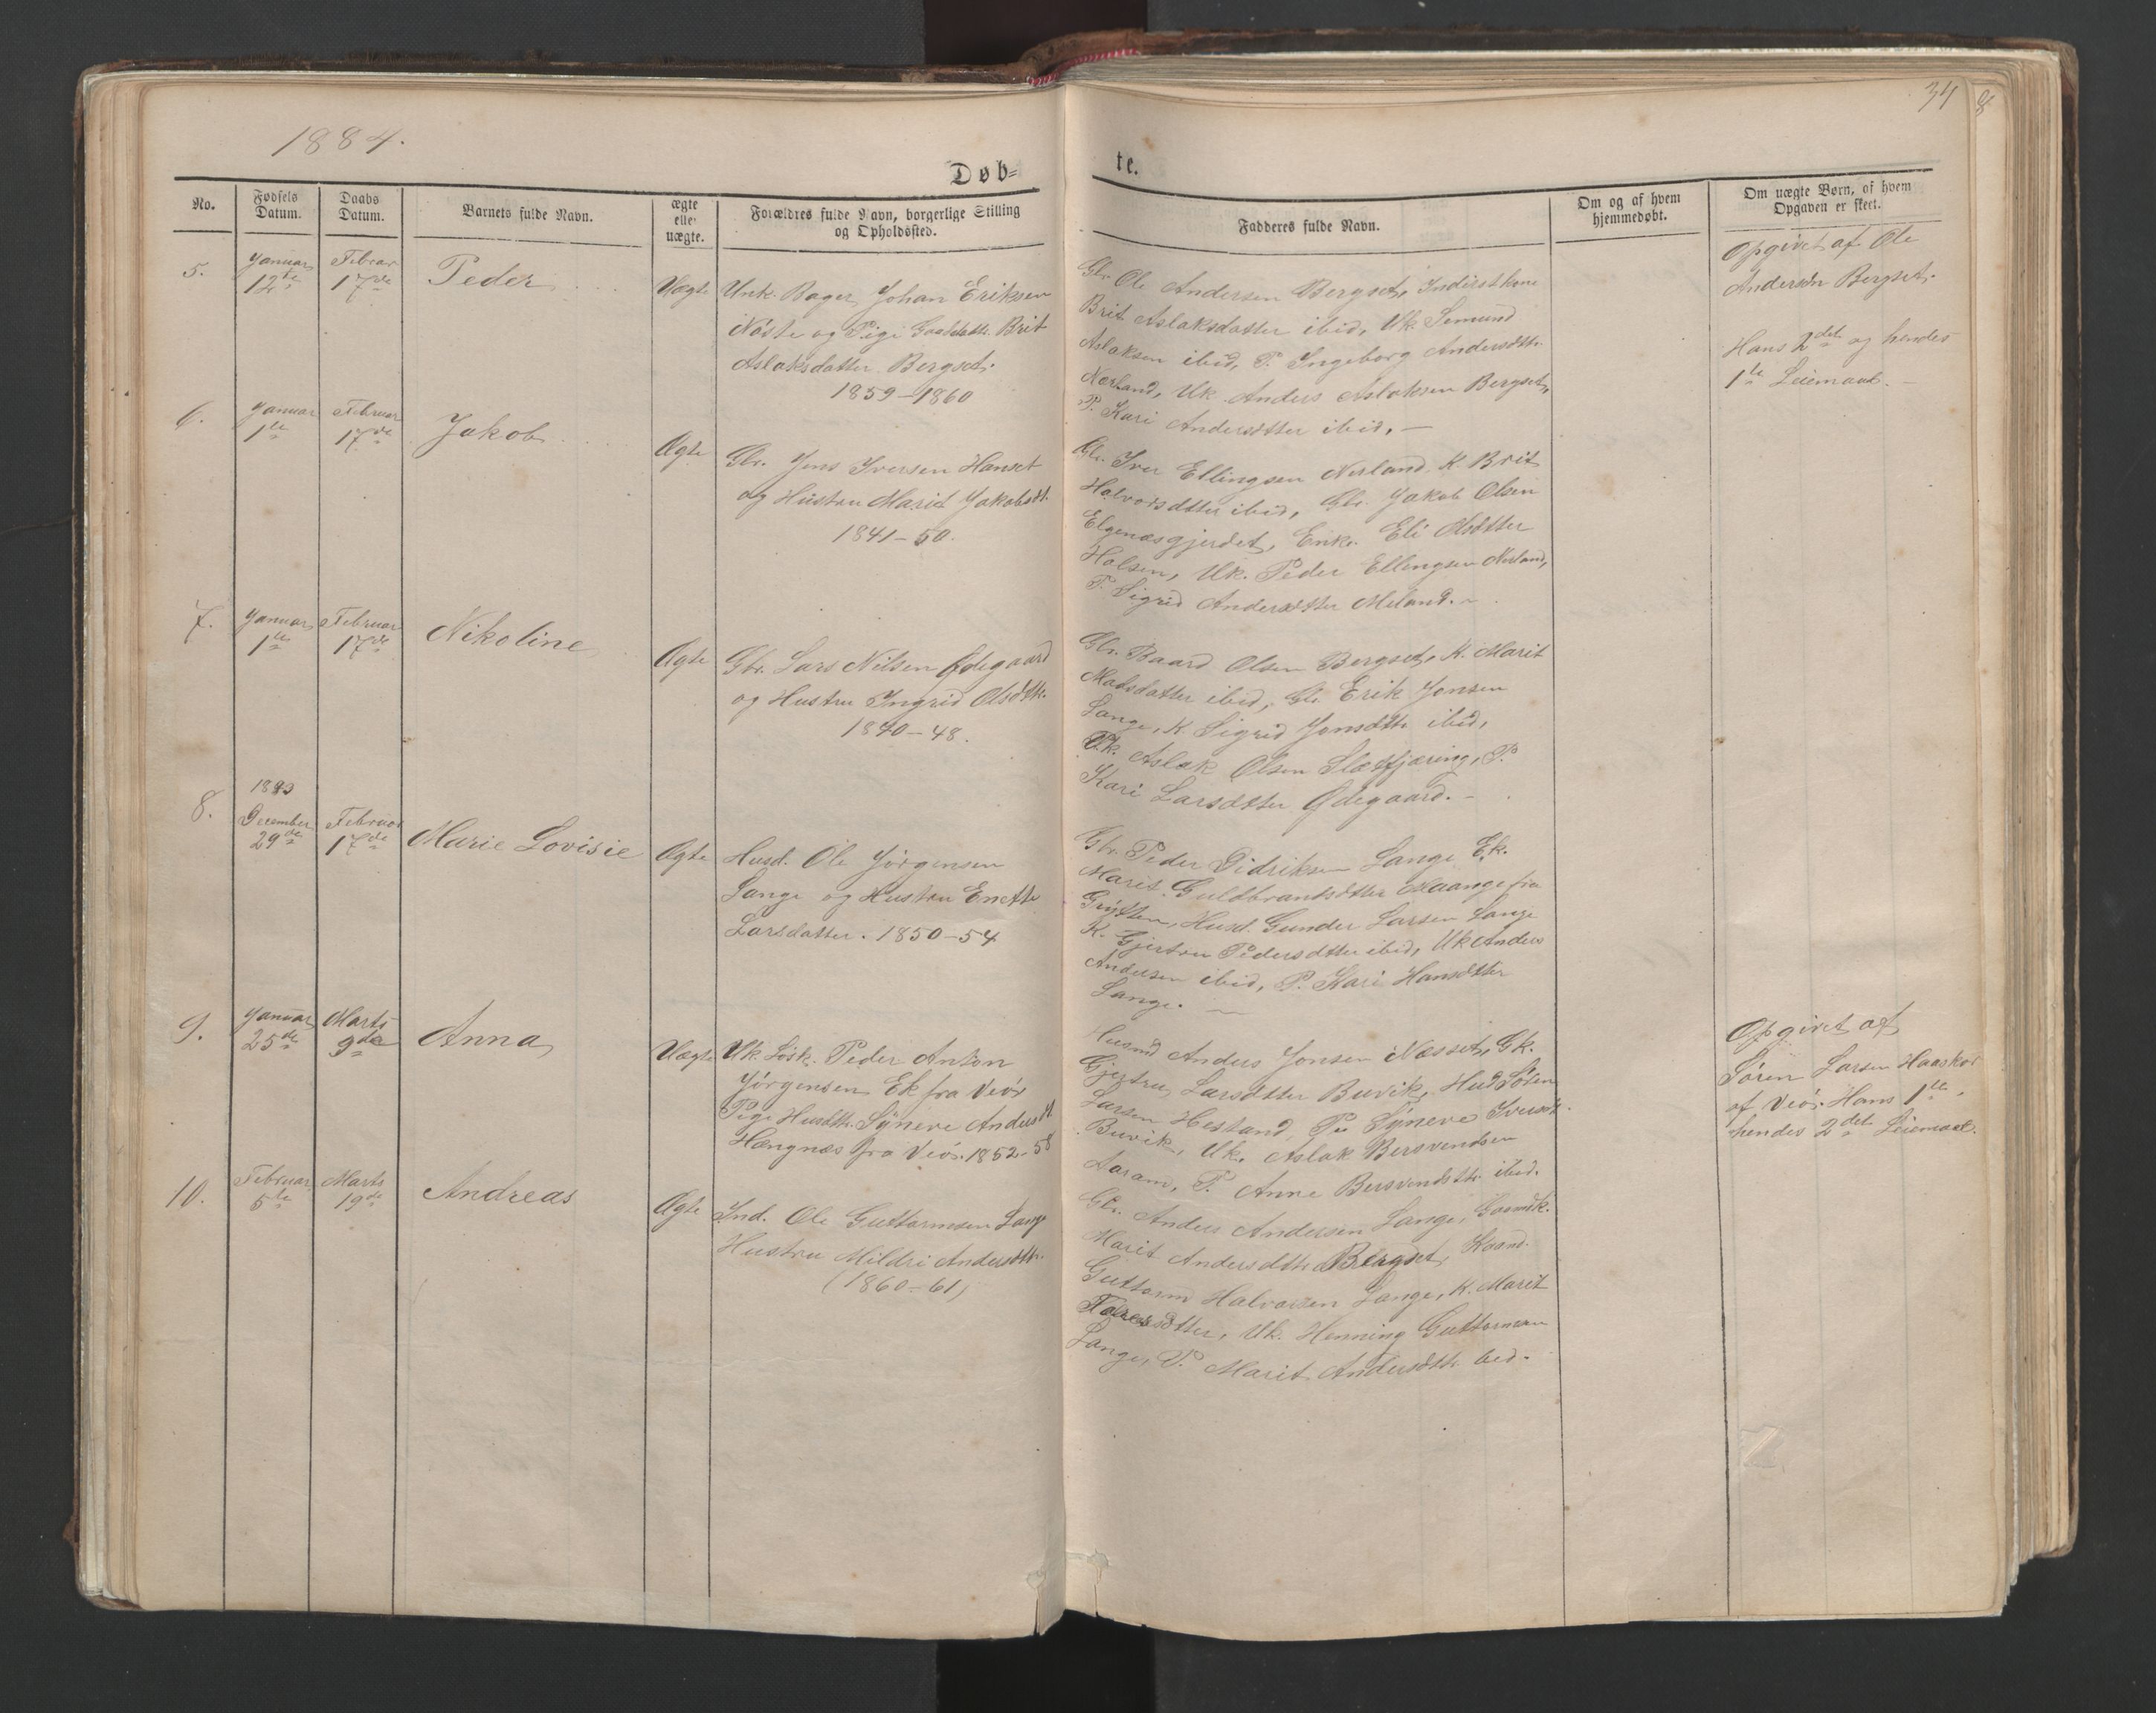 1884.
34
8
Døb=
te.
No.
Fødsels Datum.
Daabs Datum.
Barnets fulde Navn.
ægte eller uægte.
Forældres fulde Navn, borgerlige Stilling og Opholdssted.
Fadderes fulde Navn.
Om og af hvem hjemmedøbt.
Om uægte Børn, af hvem Opgaven er skeet.
5.
Januar
12te
Februar
17de
Peder
Uægte
Unk. Bager Johan Eriksen
Nøste og Pige Brit
Aslaksdatter Bergset.
1859–1860
Gbr. Ole Andersen Bergset, Inderstkone
Brit Aslaksdatter ibid, Uk. Semund
Aslaksen ibid, P. Ingeborg Andersdttr.
Nerland, Uk. Anders Aslaksen Bergset,
P. Kari Andersdtter ibid. –
Opgivet af Ole
Andersen Bergset.
Hans 2det og hendes
1te Leiemaal. –
6.
Januar
1te
Februar
17de
Jakob
Ægte
Gbr. Jens Iversen Hanset
og Hustru Marit Jakobsdt.
1841–50.
Gbr. Iver Ellingsen Nerland, K. Brit
Halvorsdtter ibid, Gbr. Jakob Olsen
Elgenæsgjerdet, Enke Eli Olsdtter
Holsen, Uk. Peder Ellingsen Nerland,
P. Sigrid Andersdtter Meland. –
7.
Januar
1te
Februar
17de
Nikoline
Ægte
Gbr. Lars Nilsen Ødegaard
og Hustru Ingrid Olsdtr.
1840–48.
Gbr. Baard Olsen Bergset, K. Marit
Matsdatter ibid, Gbr Erik Jonsen
Lange, K Sigrid Jonsdttr ibid,
Uk. Aslak Olsen Sletfjæring, P.
Kari Larsdtter Ødegaard. –
8.
1883
December
29de
Februar
17de
Marie Lovisie
Ægte
Husd. Ole Jørgensen
Lange og Hustru Enette
Larsdatter. 1850–54
Gbr. Peder Didriksen Lange, Ek.
Marit Guldbrandsdtter Maange fra
Grytten, Husd. Gunder Larsen Lange
K. Gjertru Pedersdtter ibid, Uk Anders
Andersen ibid, P. Kari Hansdtter
Lange. –
9.
Januar
25de
Marts
9de
Anna
Uægte
Uk. Løsk. Peder Anton
Jørgensen Ek fra Veø
Pige Husdttr. Synere Andersdt.
Hængnæs fra Veø. 1852–58
Husmd Anders Jonsen Næsset, Gk.
Gjertru Larsdtter Buvik, Husd Søren
Larsen Hestand, Synere Iversdtr.
Buvik, Uk. Aslak Bersvendsen
Aaram, P. Anne Bersvendsdtr ibid.
Opgivet af
Søren Larsen Haaskor
af Veø. Hans 1te,
hendes 2det Leiemaal.
10.
Februar
5te
Marts
19de
Andreas
Ægte
Ind. Ole Guttormsen Lange
Hustru Mildri Andersdttr.
(1860–61)
Gbr. Anders Andersen Lange, Gaardk.
Marit Andersdttr Bergset, Kaand.
Guttorm Halvorsen Lange, K. Marit
Uk. Henning Guttormsen
Lange, P. Marit Andersdttr ibid.